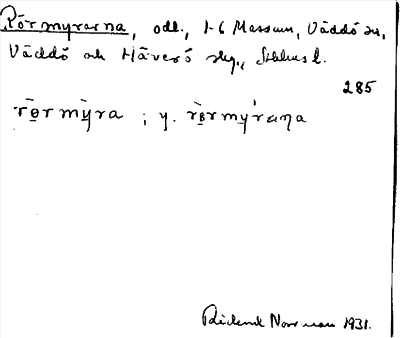 Rörmyrarna, odl., 1-6 Massum, Väddö sn,
Väddö och Häverö skg., Sthlms l.
285
rö̀rmỳra ; y. rö̀rmýraṇa
Rickard Norrman 1931.